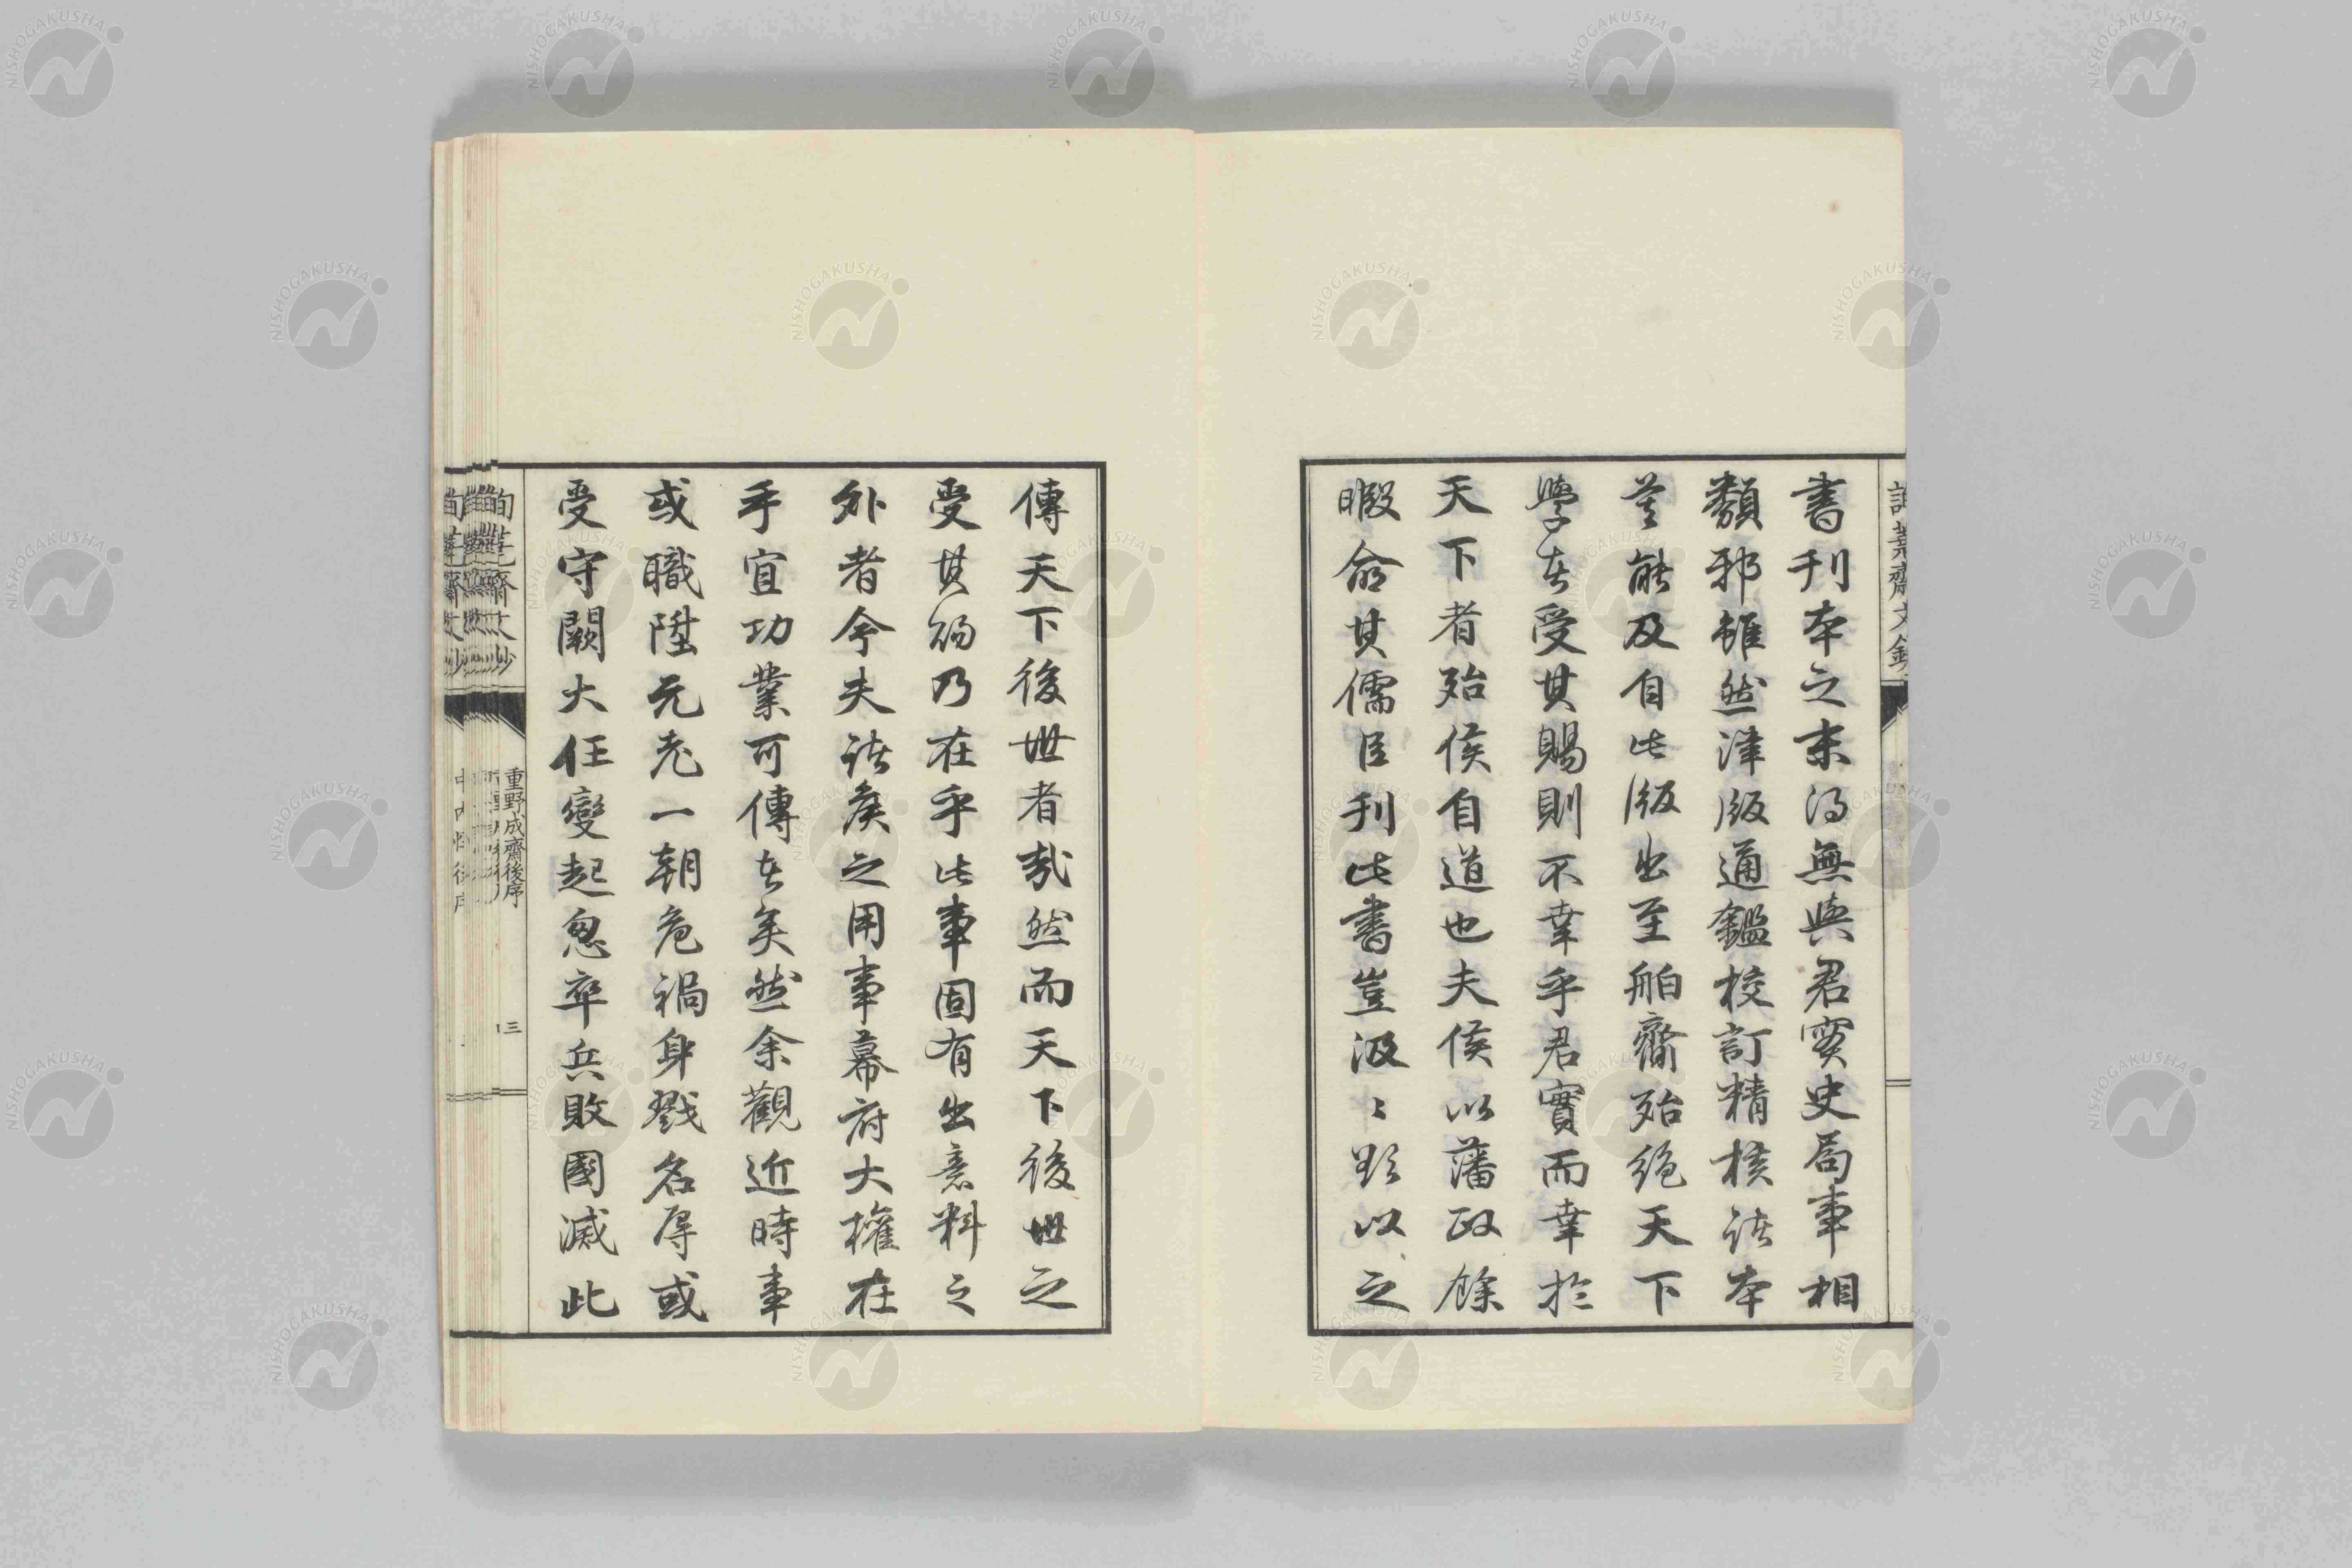 書刊本之末得無與君實史局事相
類邪雖然津版通鑑校訂精核諸本
莫能及自此版出至舶齎殆絶天下
學者受其賜則不幸乎君實而幸於
天下者殆侯自道也夫侯以藩政餘
暇命其儒臣刊此書豈汲〻欲以之
傳天下後世者哉然而天下後世之
受其賜乃在乎此事固有出意料之
外者今夫諸侯之用事幕府大權在
手宜功業可傳者矣然余觀近時事
或職陞元老一朝危禍身戮名辱或
受守闕大任變起怱卒兵敗國滅此
重野成齋後序
三
NISHOGAKUSHA